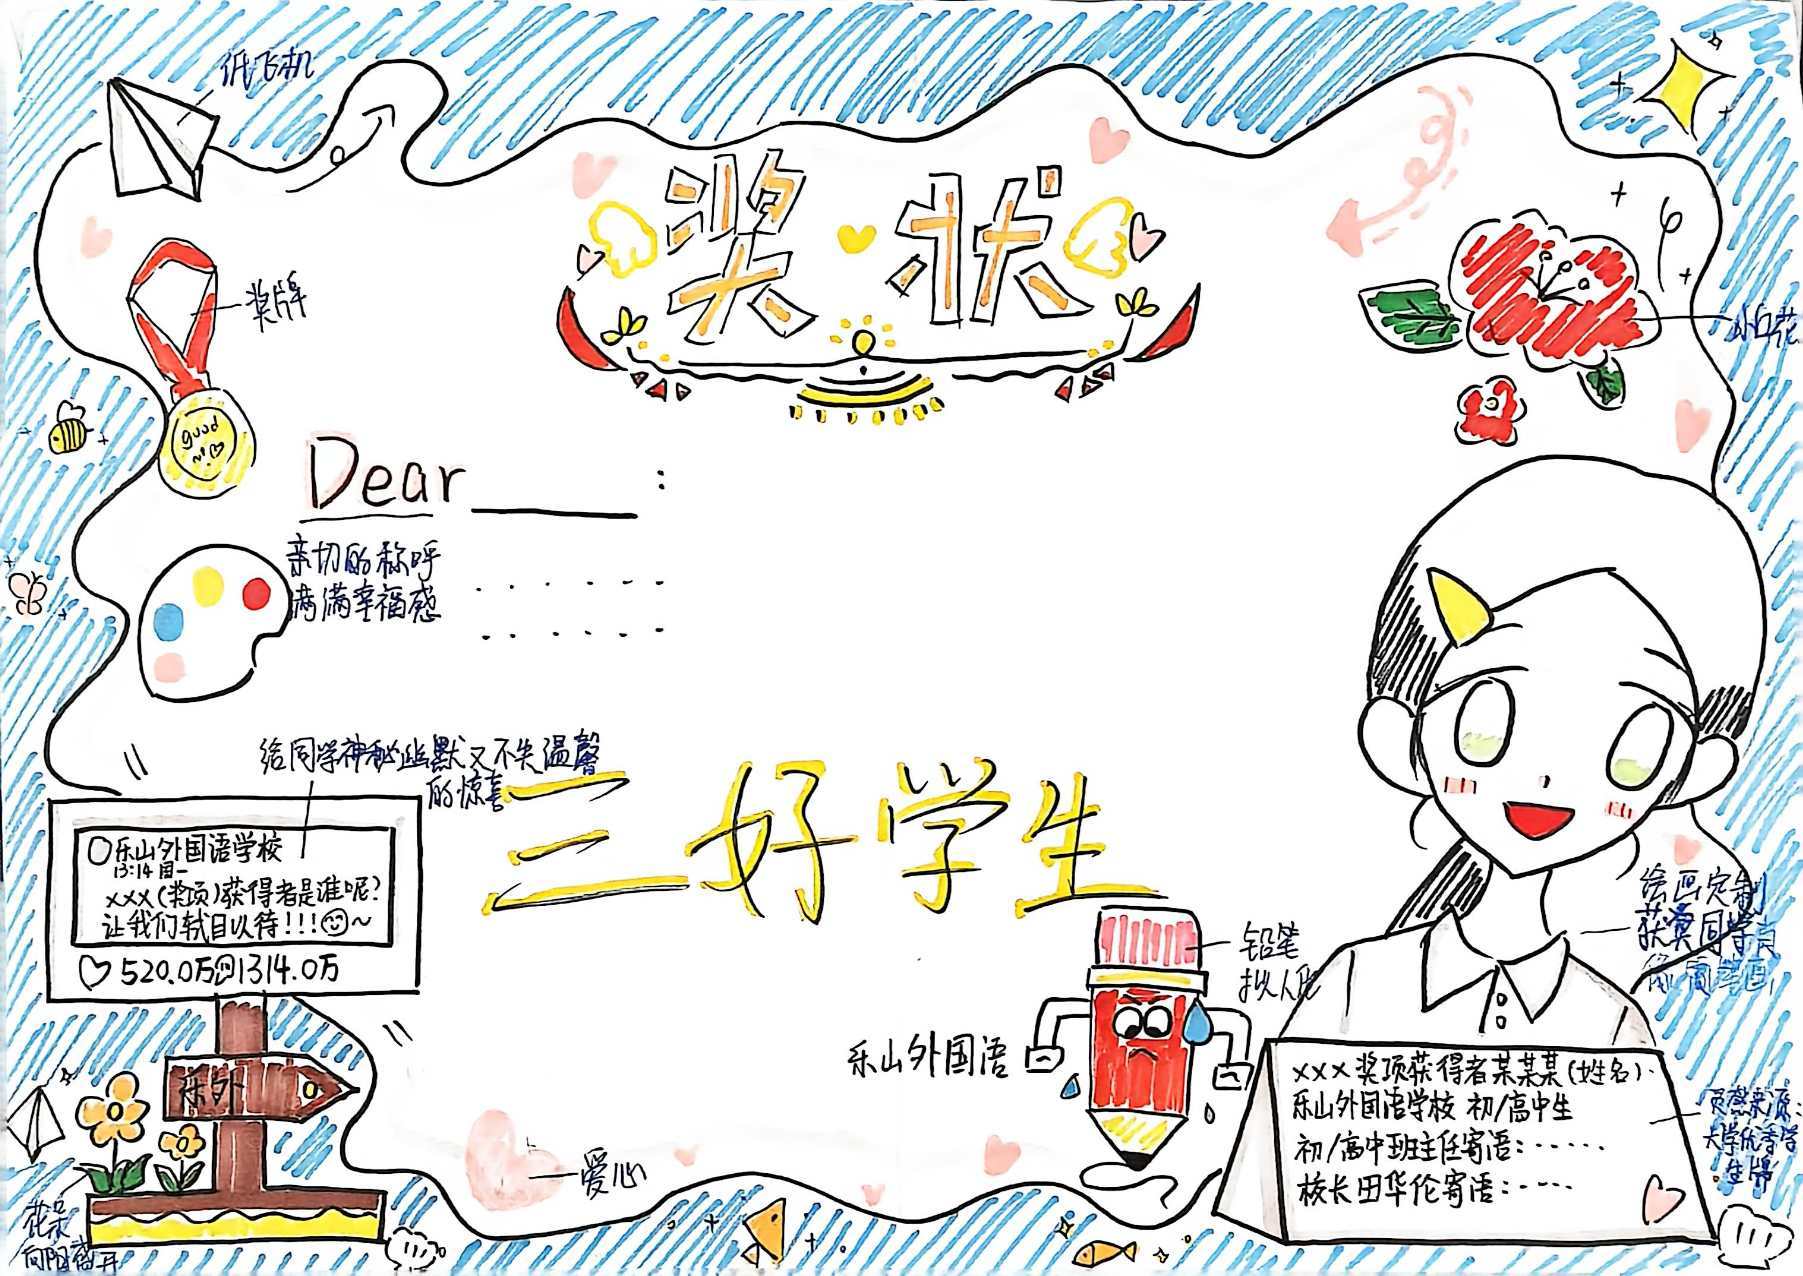 纸飞机
奖状
奖牌
小红花
good
Dear ______ :
亲切的称呼
满满幸福感
······
······
给同学神秘幽默又不失温馨
的惊喜
三好学生
乐山外国语学校
13:14 周一
×××(奖项)获得者是谁呢?
让我们拭目以待!!!~
520.0万 1314.0万
乐外
花朵
向阳盛开
爱心
铅笔
拟人化
乐山外国语
绘画定制
获奖同学肖
像简笔画
×××奖项获得者某某某(姓名)
乐山外国语学校 初/高中生
初/高中班主任寄语:······
校长田华伦寄语:·····
灵感来源:
大学优秀学
生牌